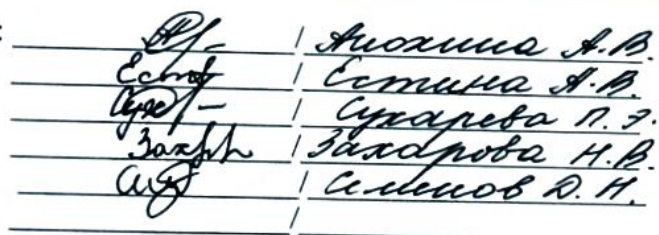 / Анохина А.В.
/ Естина А.В.
/ Сухарева П.Э.
Захар / Захарова Н.В.
/ Семенов Д.Н.
/